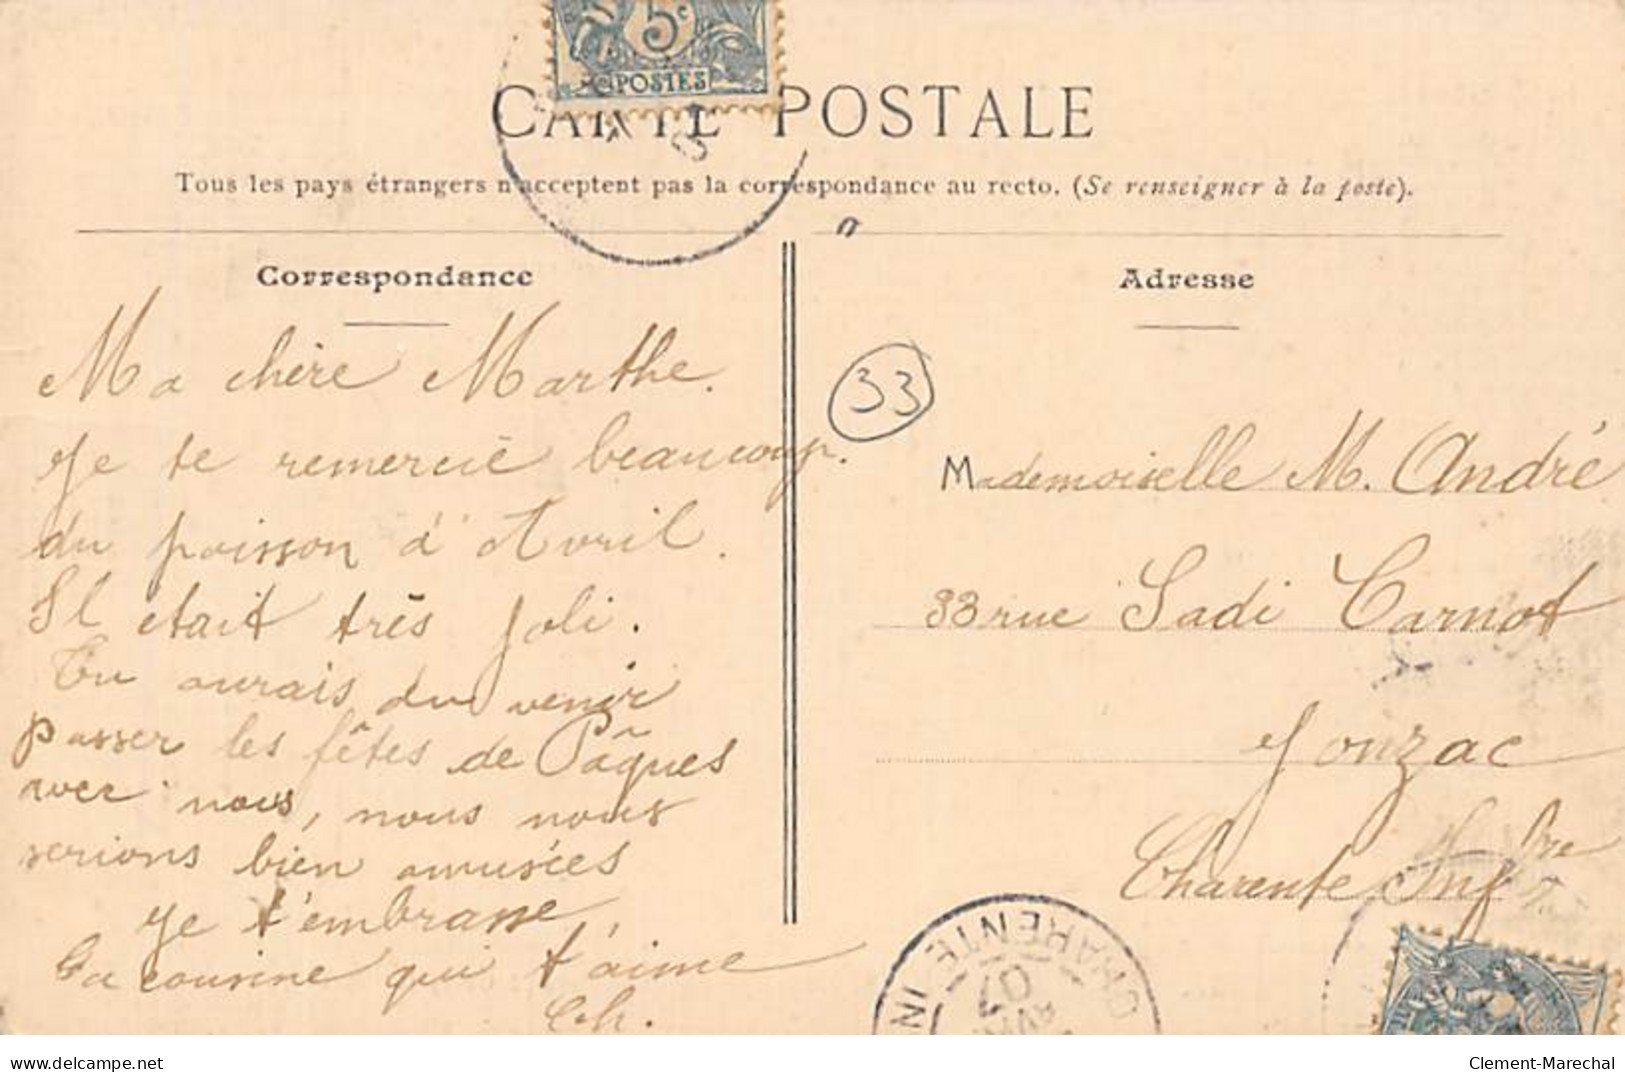 5c
POSTES
CARTE POSTALE
Tous les pays étrangers n'acceptent pas la correspondance au recto. (Se renseigner à la poste).
Correspondance
Ma chère Marthe.
Je te remercie beaucoup.
du poisson d'Avril.
Il etait très joli.
Tu aurais du venir
passer les fêtes de Pâques
avec nous, nous nous
serions bien amusées
Je t'embrasse,
Ta cousine qui t'aime
Ch.
33
Adresse
Mademoiselle M. André
33 rue Sadi Carnot
Jonzac
Charente Infre
CHARENTE IN
07
AVR
Clement-Marechal
delcampe.net